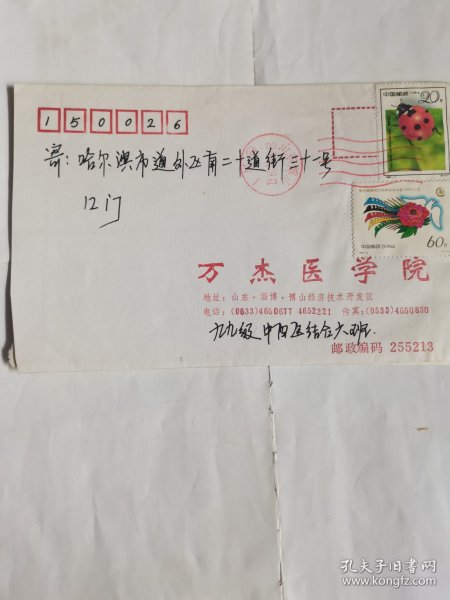 150026
中国邮政
20分
寄：哈尔滨市道外区南二十道街三十一号
12门
中国邮政 CHINA
60分
万杰医学院
地址：山东·淄博·博山经济技术开发区
电话：(0533)4650677 4652221 传真：(0533)4650830
九九级中西医结合六班.
邮政编码 255213
孔夫子旧书网
www.kongfz.com